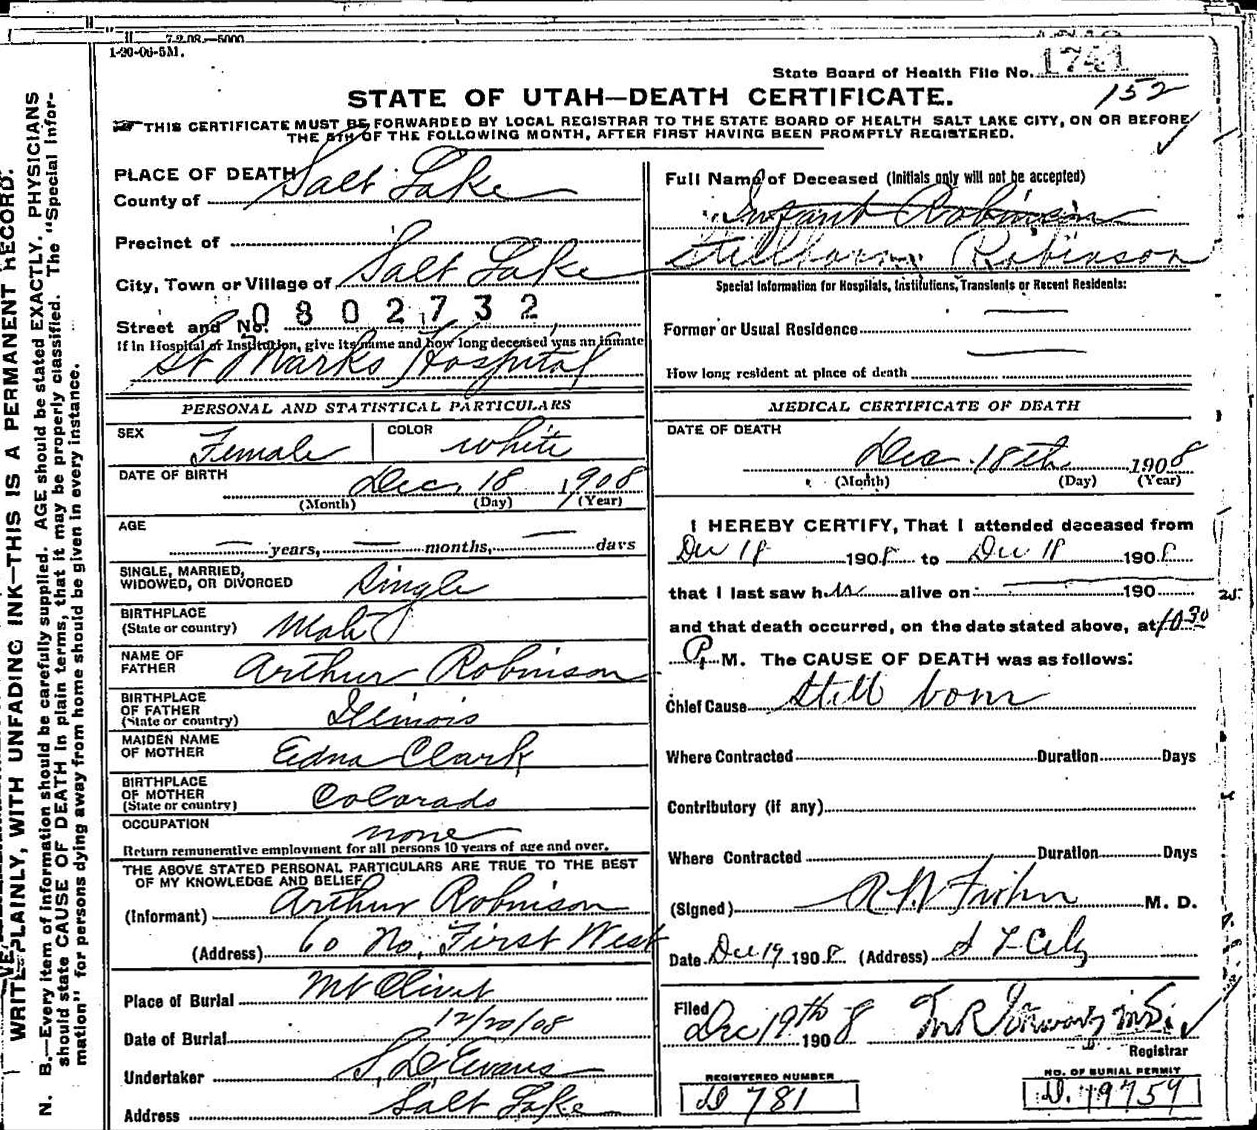 7-2-08.—5000
1-20-06-5M.
State Board of Health File No. 1741
152
STATE OF UTAH—DEATH CERTIFICATE.
THIS CERTIFICATE MUST BE FORWARDED BY LOCAL REGISTRAR TO THE STATE BOARD OF HEALTH SALT LAKE CITY, ON OR BEFORE
THE 5TH OF THE FOLLOWING MONTH, AFTER FIRST HAVING BEEN PROMPTLY REGISTERED.
PLACE OF DEATH
County of Salt Lake
Precinct of
City, Town or Village of Salt Lake
Street and No. 0802732
If in Hospital or Institution, give its name and how long deceased was an inmate
St Marks Hospital
PERSONAL AND STATISTICAL PARTICULARS
SEX Female COLOR white
DATE OF BIRTH Dec. 18 1908
(Month) (Day) (Year)
AGE
— years, — months, — days
SINGLE, MARRIED,
WIDOWED, OR DIVORCED Single
BIRTHPLACE
(State or country) Utah
NAME OF
FATHER Arthur Robinson
BIRTHPLACE
OF FATHER
(State or country) Illinois
MAIDEN NAME
OF MOTHER Edna Clark
BIRTHPLACE
OF MOTHER
(State or country) Colorado
OCCUPATION none
Return remunerative employment for all persons 10 years of age and over.
THE ABOVE STATED PERSONAL PARTICULARS ARE TRUE TO THE BEST
OF MY KNOWLEDGE AND BELIEF
(Informant) Arthur Robinson
(Address) 60 No. First West
Place of Burial Mt Olivet
Date of Burial 12/20/08
Undertaker S. D. Evans
Address Salt Lake
Full Name of Deceased (Initials only will not be accepted)
Infant Robinson
Stillborn Robinson
Special Information for Hospitals, Institutions, Transients or Recent Residents:
Former or Usual Residence —
How long resident at place of death —
MEDICAL CERTIFICATE OF DEATH
DATE OF DEATH
Dec 18th 1908
(Month) (Day) (Year)
I HEREBY CERTIFY, That I attended deceased from
Dec 18 1908 to Dec 18 1908
that I last saw h alive on — 190
and that death occurred, on the date stated above, at 10.30
P. M. The CAUSE OF DEATH was as follows:
Chief Cause Still born
Where Contracted Duration Days
Contributory (if any)
Where Contracted Duration Days
(Signed) M. D.
Date Dec 19 1908 (Address) S L City
Filed
Dec 19th 1908
Registrar
REGISTERED NUMBER
D 781
NO. OF BURIAL PERMIT
D. 19759
WRITE PLAINLY, WITH UNFADING INK—THIS IS A PERMANENT RECORD.
N. B.—Every item of information should be carefully supplied. AGE should be stated EXACTLY. PHYSICIANS
should state CAUSE OF DEATH in plain terms, that it may be properly classified. The "Special Infor-
mation" for persons dying away from home should be given in every instance.